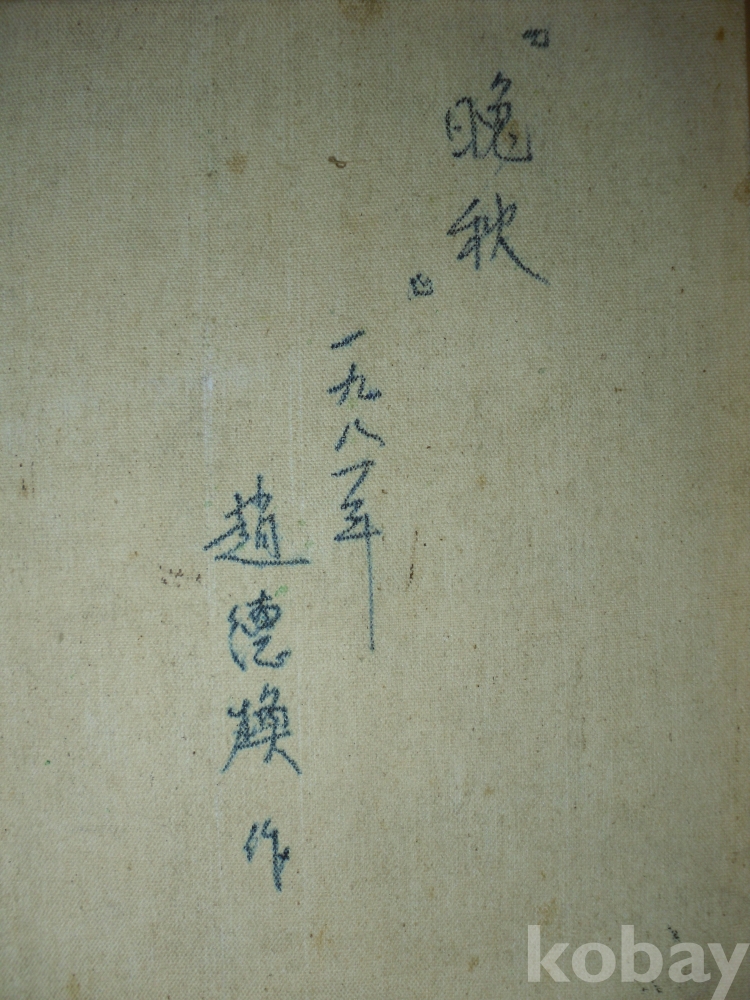 「晩秋」
一九八一年
趙德煥 作
kobay